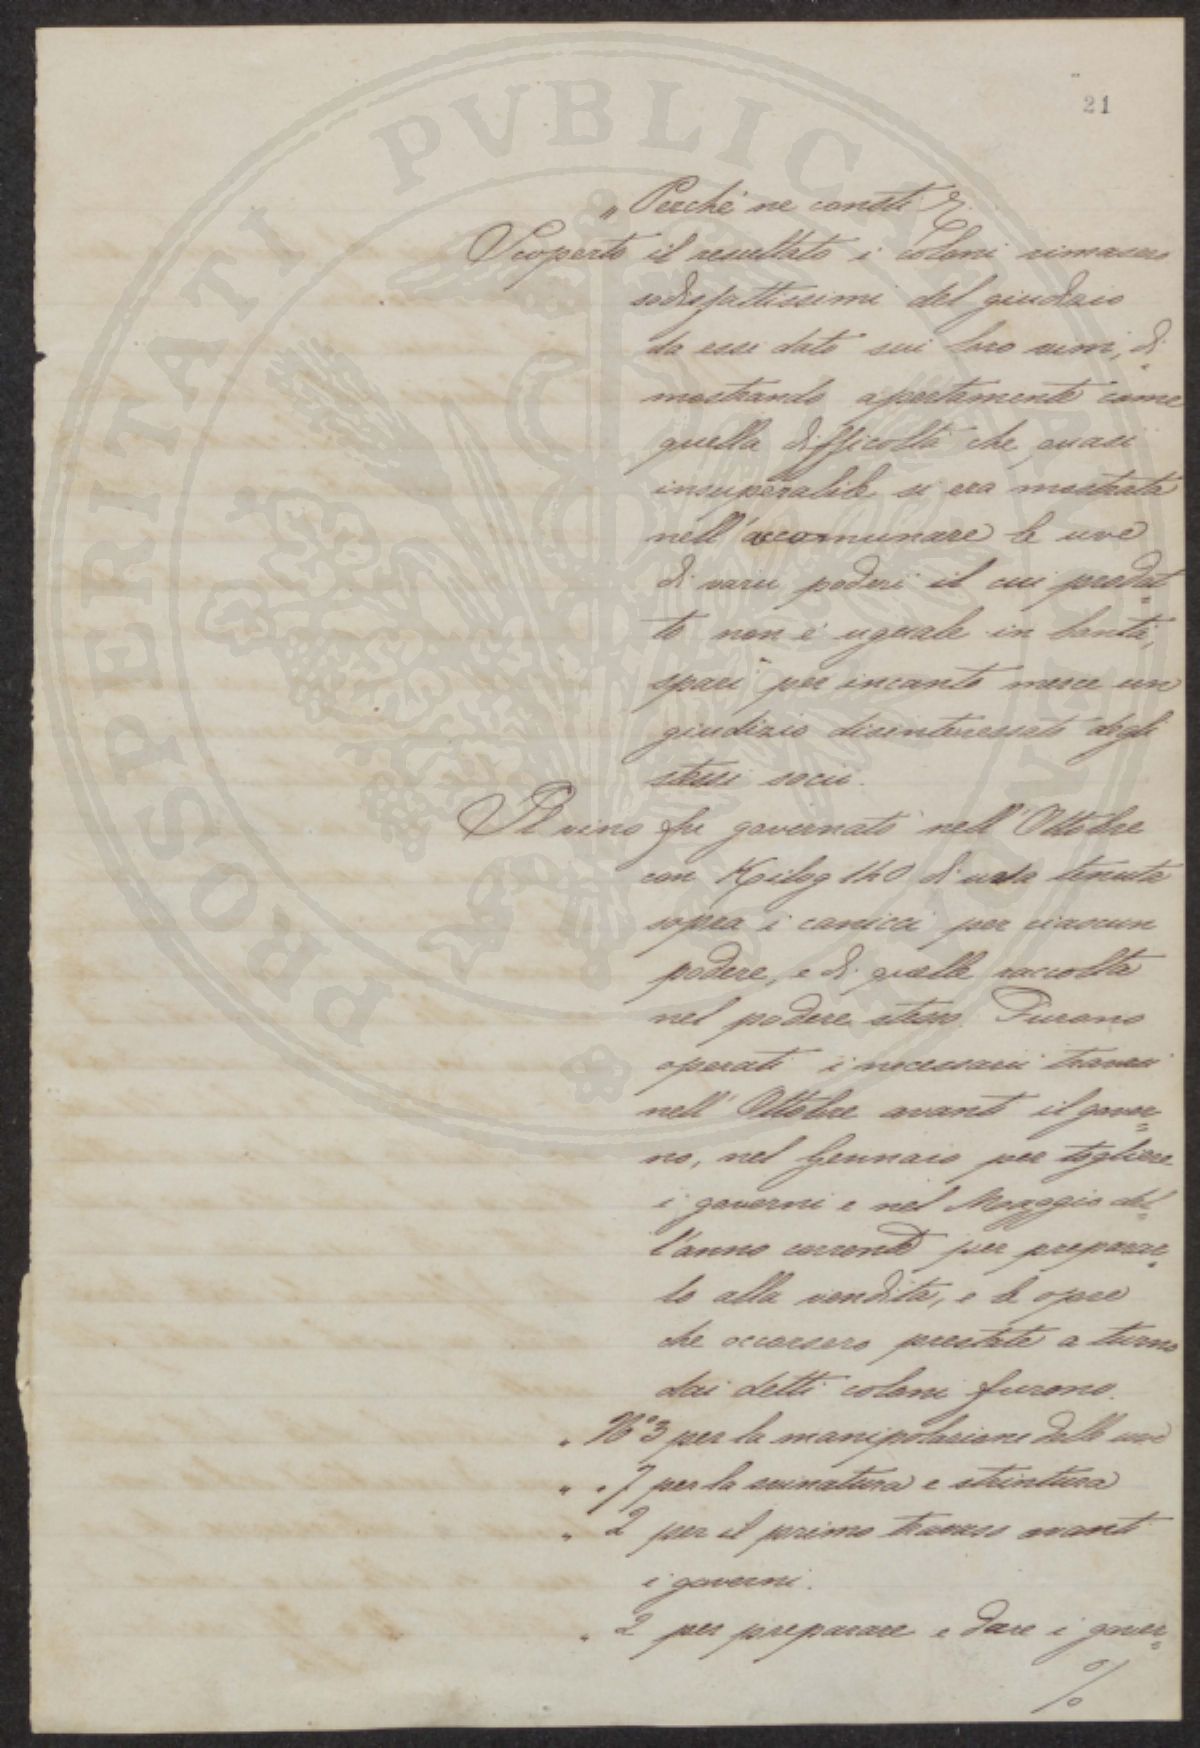 21
„ Perché ne consti &.
Scoperto il resultato i Coloni rimasero
sodisfattissimi del giudizio
da essi dato sui loro vini, di
mostrando apertamente come
quella difficoltà che quasi
insuperabile si era mostrata
nell'accomunare le uve
di varii poderi il cui prodot=
to non è uguale in bontà,
sparì per incanto mercè un
giudizio disinteressato degli
stessi socii.
Il vino fu governato nell'Ottobre
con Kilog 140 di uva tenuta
sopra i canicci per ciascun
podere, e di quelle raccolta
nel podere stesso. Furono
operati i necessarii travasi
nell'Ottobre avanti il gover=
no, nel Gennaio per togliere
i governi e nel Maggio del=
l'anno corrente per preparar=
lo alla vendita, e le opre
che occorsero prestate a turno
dai detti coloni furono.
„ N.° 3 per la manipolazione delle uve
„ „ 7 per la svinatura e strintura
„ 2 per il primo travaso avanti
i governi.
„ 2 per preparare e dare i gover=
%
PROSPERITATI PVBLICAE